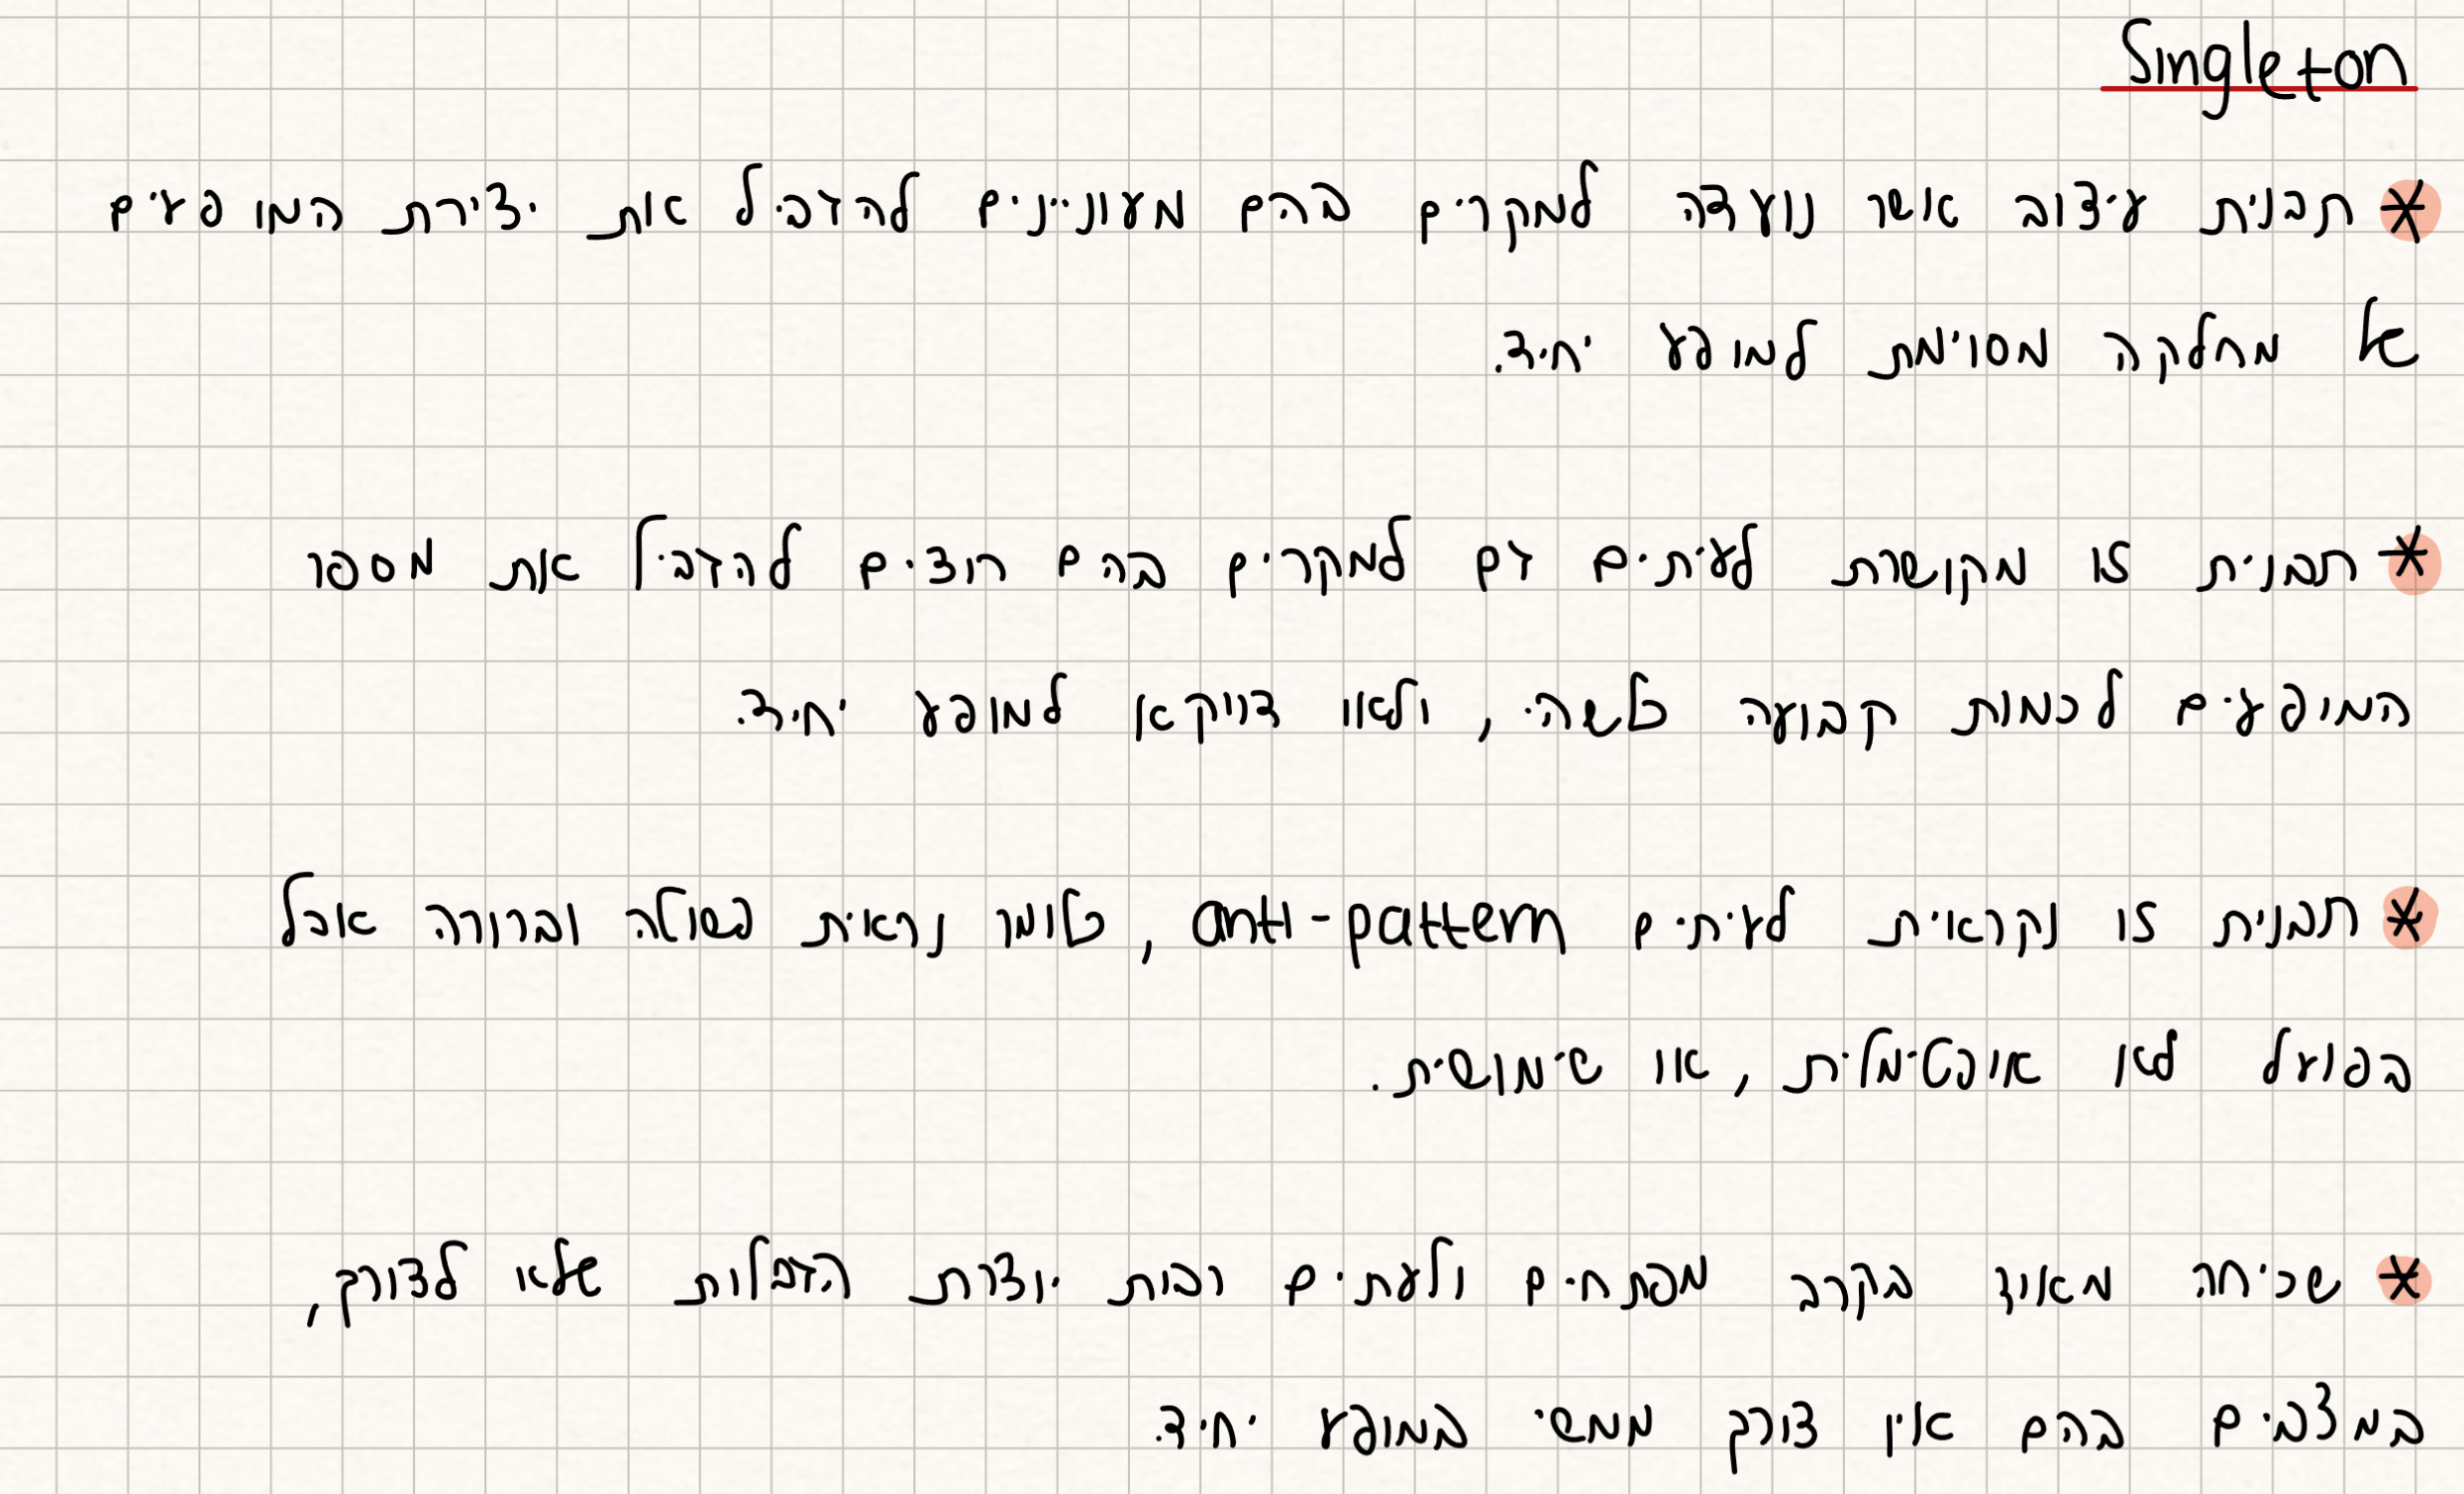 Singleton
* תבנית עיצוב אשר נועדה למקרים בהם מעוניינים להגביל את יצירת המופעים
של מחלקה מסוימת למופע יחיד.
* תבנית זו מקושרת לעיתים גם למקרים בהם רוצים להגביל את מספר
המופעים לכמות קבועה כלשהי, ולאו דווקא למופע יחיד.
* תבנית זו נקראית לעיתים anti-pattern, כלומר נראית פשוטה וברורה אבל
בפועל לא אופטימלית, או שימושית.
* שכיחה מאוד בקרב מפתחים ולעתים רבות יוצרת הגבלות שלא לצורך,
במצבים בהם אין צורך ממשי במופע יחיד.